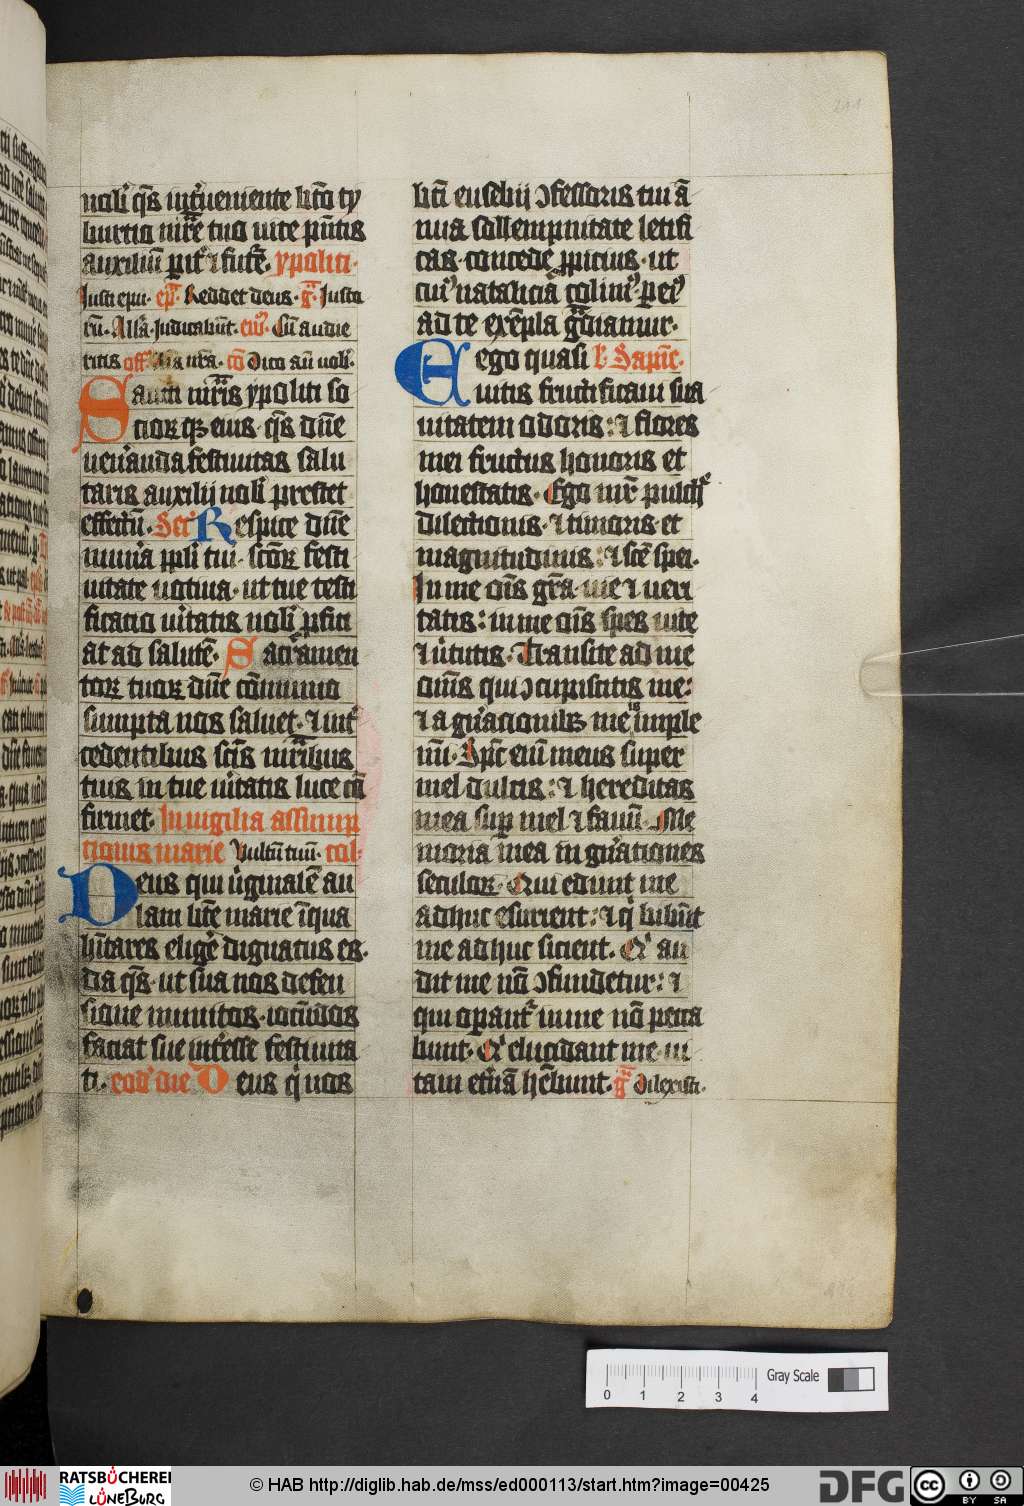 nob̄ q̄s interueniente bt̄o ty
burcio mr̄e tuo vite pn̄tis
auxiliū ꝑcipiat ⁊ futr̄e. ypoliti.
Iusti epu. ep̄. Reddet deus. gͣ. Iusto
rū. All̄a. Iudicabūt. ew̄. Cū audie
ritis off. cō Dico aū vob̄.
Sancti mr̄is ypoliti so
cioꝝ qꝫ eius. q̄s dn̄e
ven̄anda festiuitas salu
taris auxilij nob̄ prestet
effectū. Secr̄ Respice dn̄e
mun̄a ppl̄i tui. sc̄oꝝ festi
uitate votiua. ut tue testi
ficatio v̄itatis nob̄ ꝓfici
at ad salutē. Sacramen
toꝝ tuoꝝ dn̄e cōmunio
sumpta nos saluet. ⁊ int̄
cedentibus sc̄is mr̄ibus
tuis in tue v̄itatis luce cō
firmet. In vigilia assump
cionis marie Vultū tuū. coll̄
Deus qui v̄ginalē au
lam bt̄e marie ī qua
h̄itares eliḡe dignatus es.
da q̄s. ut sua nos defen
sione munitos. iocūdos
faciat sue int̄esse festiuita
ti. eod̄ die Deus qͥ nos
bt̄i eusebij ↄfessoris tui ā
nua sollempnitate letifi
cas. concede ꝓpicius. ut
cuiꝰ natalicia colimꝰ. per eiꝰ
ad te exēpla gͣdiamur.
Ego quasi l̄ Sapīe.
vitis fructificaui sua
uitatem odoris: ⁊ flores
mei fructus honoris et
honestatis. Ego mr̄ pulch̄
dilectionis. ⁊ timoris et
magnitudinis: ⁊ sc̄e spei.
In me om̄s gr̄a vie ⁊ veri
tatis: in me om̄s spes vite
⁊ v̄tutis. Transite ad me
om̄s qui ↄcupiscitis me:
⁊ a gn̄acionibꝫ meis imple
mi. Sp̄c em̄ meus super
mel dulcis: ⁊ hereditas
mea suꝑ mel ⁊ fauū. Me
moria mea in gn̄ationes
seculoꝝ. Qui edunt me
adhuc esurient: ⁊ qͥ bibūt
me adhuc sicient. Qͥ au
dit me nō ↄfundetur: ⁊
qui oꝑant̄ in me nō pecca
bunt. Qͥ elucidant me. vi
tam et̄nā hēbunt. gͣ Dilexisti.
Gray Scale
0 1 2 3 4
RATSBÜCHEREI
LÜNEBURG
© HAB http://diglib.hab.de/mss/ed000113/start.htm?image=00425
DFG
cc BY SA